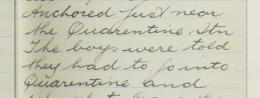 Anchored just near
the Quarentine Stn
The boys were told
they had to go into
Quarentine and